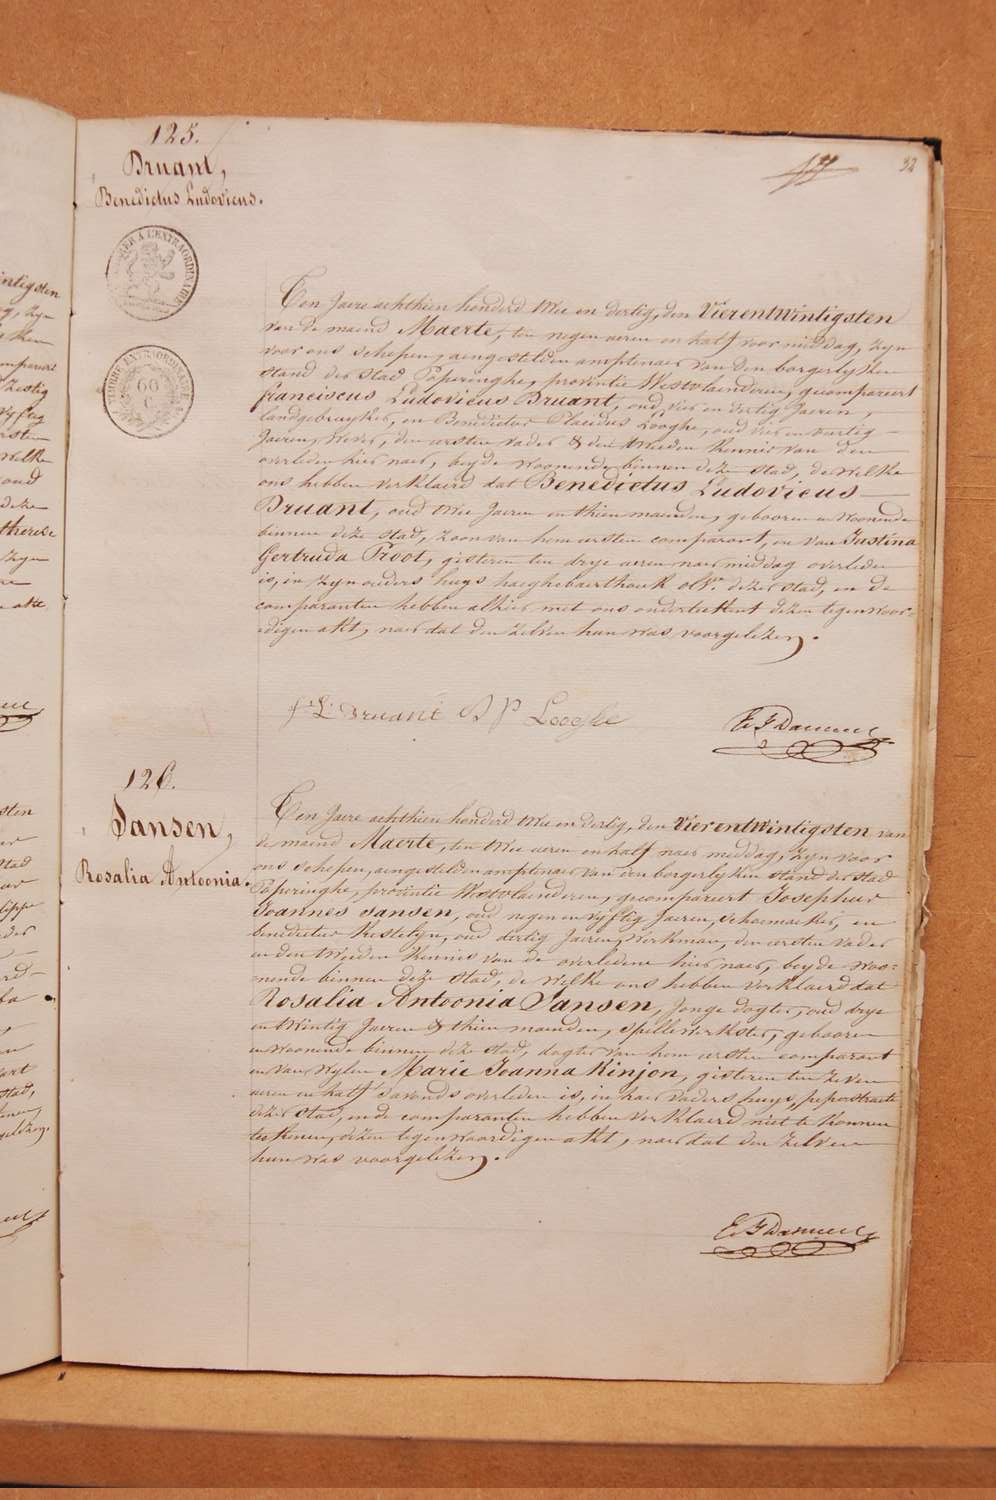 125.
Bruant,
Benedictus Ludovicus.
32
TIMBRE A L'EXTRAORDINAIRE
TIMBRE EXTRAORDINAIRE
60
C
Ten Jaere achthien honderd twee en dertig, den Vierentwintigsten
van de maend Maerte, ten negen ueren en half voor middag, zyn
voor ons schepen, aengestelden amptenaer van den borgerlyken
stand der stad Poperinghe, provintie Westvlaenderen, gecompareert
franciscus Ludovicus Bruant, oud vier en dertig Jaeren,
landgebruyker, en Benedictus Placidus Looghe, oud vier en veertig
Jaeren, wever, den eersten vader & den tweeden kennis van den
overleden hier naer, beyde woonende binnen deze stad, de welke
ons hebben verklaerd dat Benedictus Ludovicus
Bruant, oud twee Jaeren en thien maenden, gebooren en woonende
binnen deze stad, zoon van hem eersten comparant, en van Justina
Gertruda Proot, gisteren ten drye ueren naer middag overleden
is, in zyn ouders huys haeghebaerthoek dezer stad, en de
comparanten hebben alhier met ons onderteekent dezen tegenwoor-
digen akt, naer dat den zelven hun was voorgelezen.
f. L. Bruant B P Looghe
126.
Jansen,
Rosalia Antoonia.
Ten Jaere achthien honderd twee en dertig, den Vierentwintigsten van
de maend Maerte, ten twee ueren en half naer middag, zyn voor
ons schepen, aengestelden amptenaer van den borgerlyken stand der stad
Poperinghe, provintie Westvlaenderen, gecompareert Josephus
Joannes Jansen, oud negen en vyftig Jaeren, schoemaeker, en
benedictus Kestelyn, oud dertig Jaeren, werkman, den eersten vader
en den tweeden kennis van de overledene hier naer, beyde woo-
nende binnen deze stad, de welke ons hebben verklaerd dat
Rosalia Antoonia Jansen, Jonge dogter, oud drye
en twintig Jaeren & thien maenden, spellewerkster, gebooren
en woonende binnen deze stad, dogter van hem eersten comparant
en van wylen Marie Joanna Kinjon, gisteren ten zeven
ueren en half 'savonds overleden is, in haer vaders huys, peperstraete
dezer stad, en de comparanten hebben verklaerd niet te konnen
teekenen, dezen tegenwoordigen akt, naer dat den zelven
hun was voorgelezen.